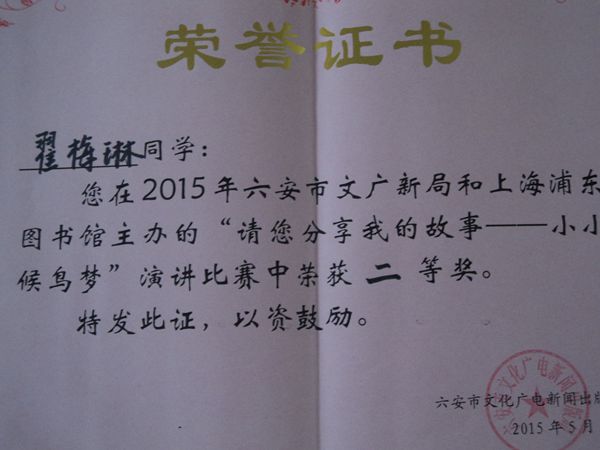 荣誉证书
翟梅琳同学：
您在2015年六安市文广新局和上海浦东
图书馆主办的“请您分享我的故事——小小
候鸟梦”演讲比赛中荣获 二 等奖。
特发此证，以资鼓励。
六安市文化广电新闻出版
2015年5月